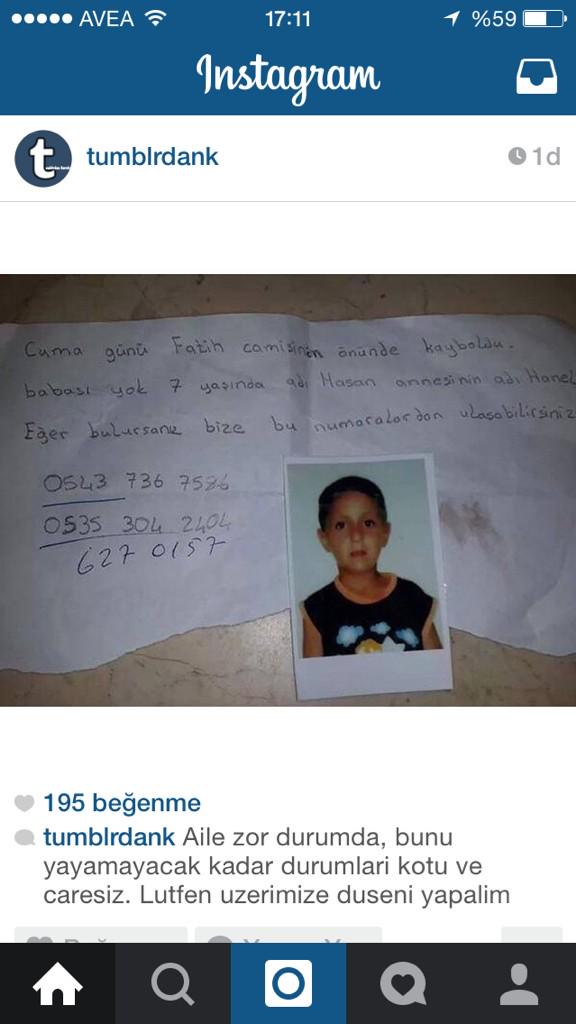 AVEA 17:11 %59
Instagram
t
tumblrdank 1d
Cuma günü Fatih camisinin önünde kayboldu.
babası yok 7 yaşında adı Hasan annesinin adı Hanel
Eğer bulursanız bize bu numaralardan ulaşabilirsiniz
0543 736 7586
0535 304 2404
627 0157
195 beğenme
tumblrdank Aile zor durumda, bunu
yayamayacak kadar durumlari kotu ve
caresiz. Lutfen uzerimize duseni yapalim